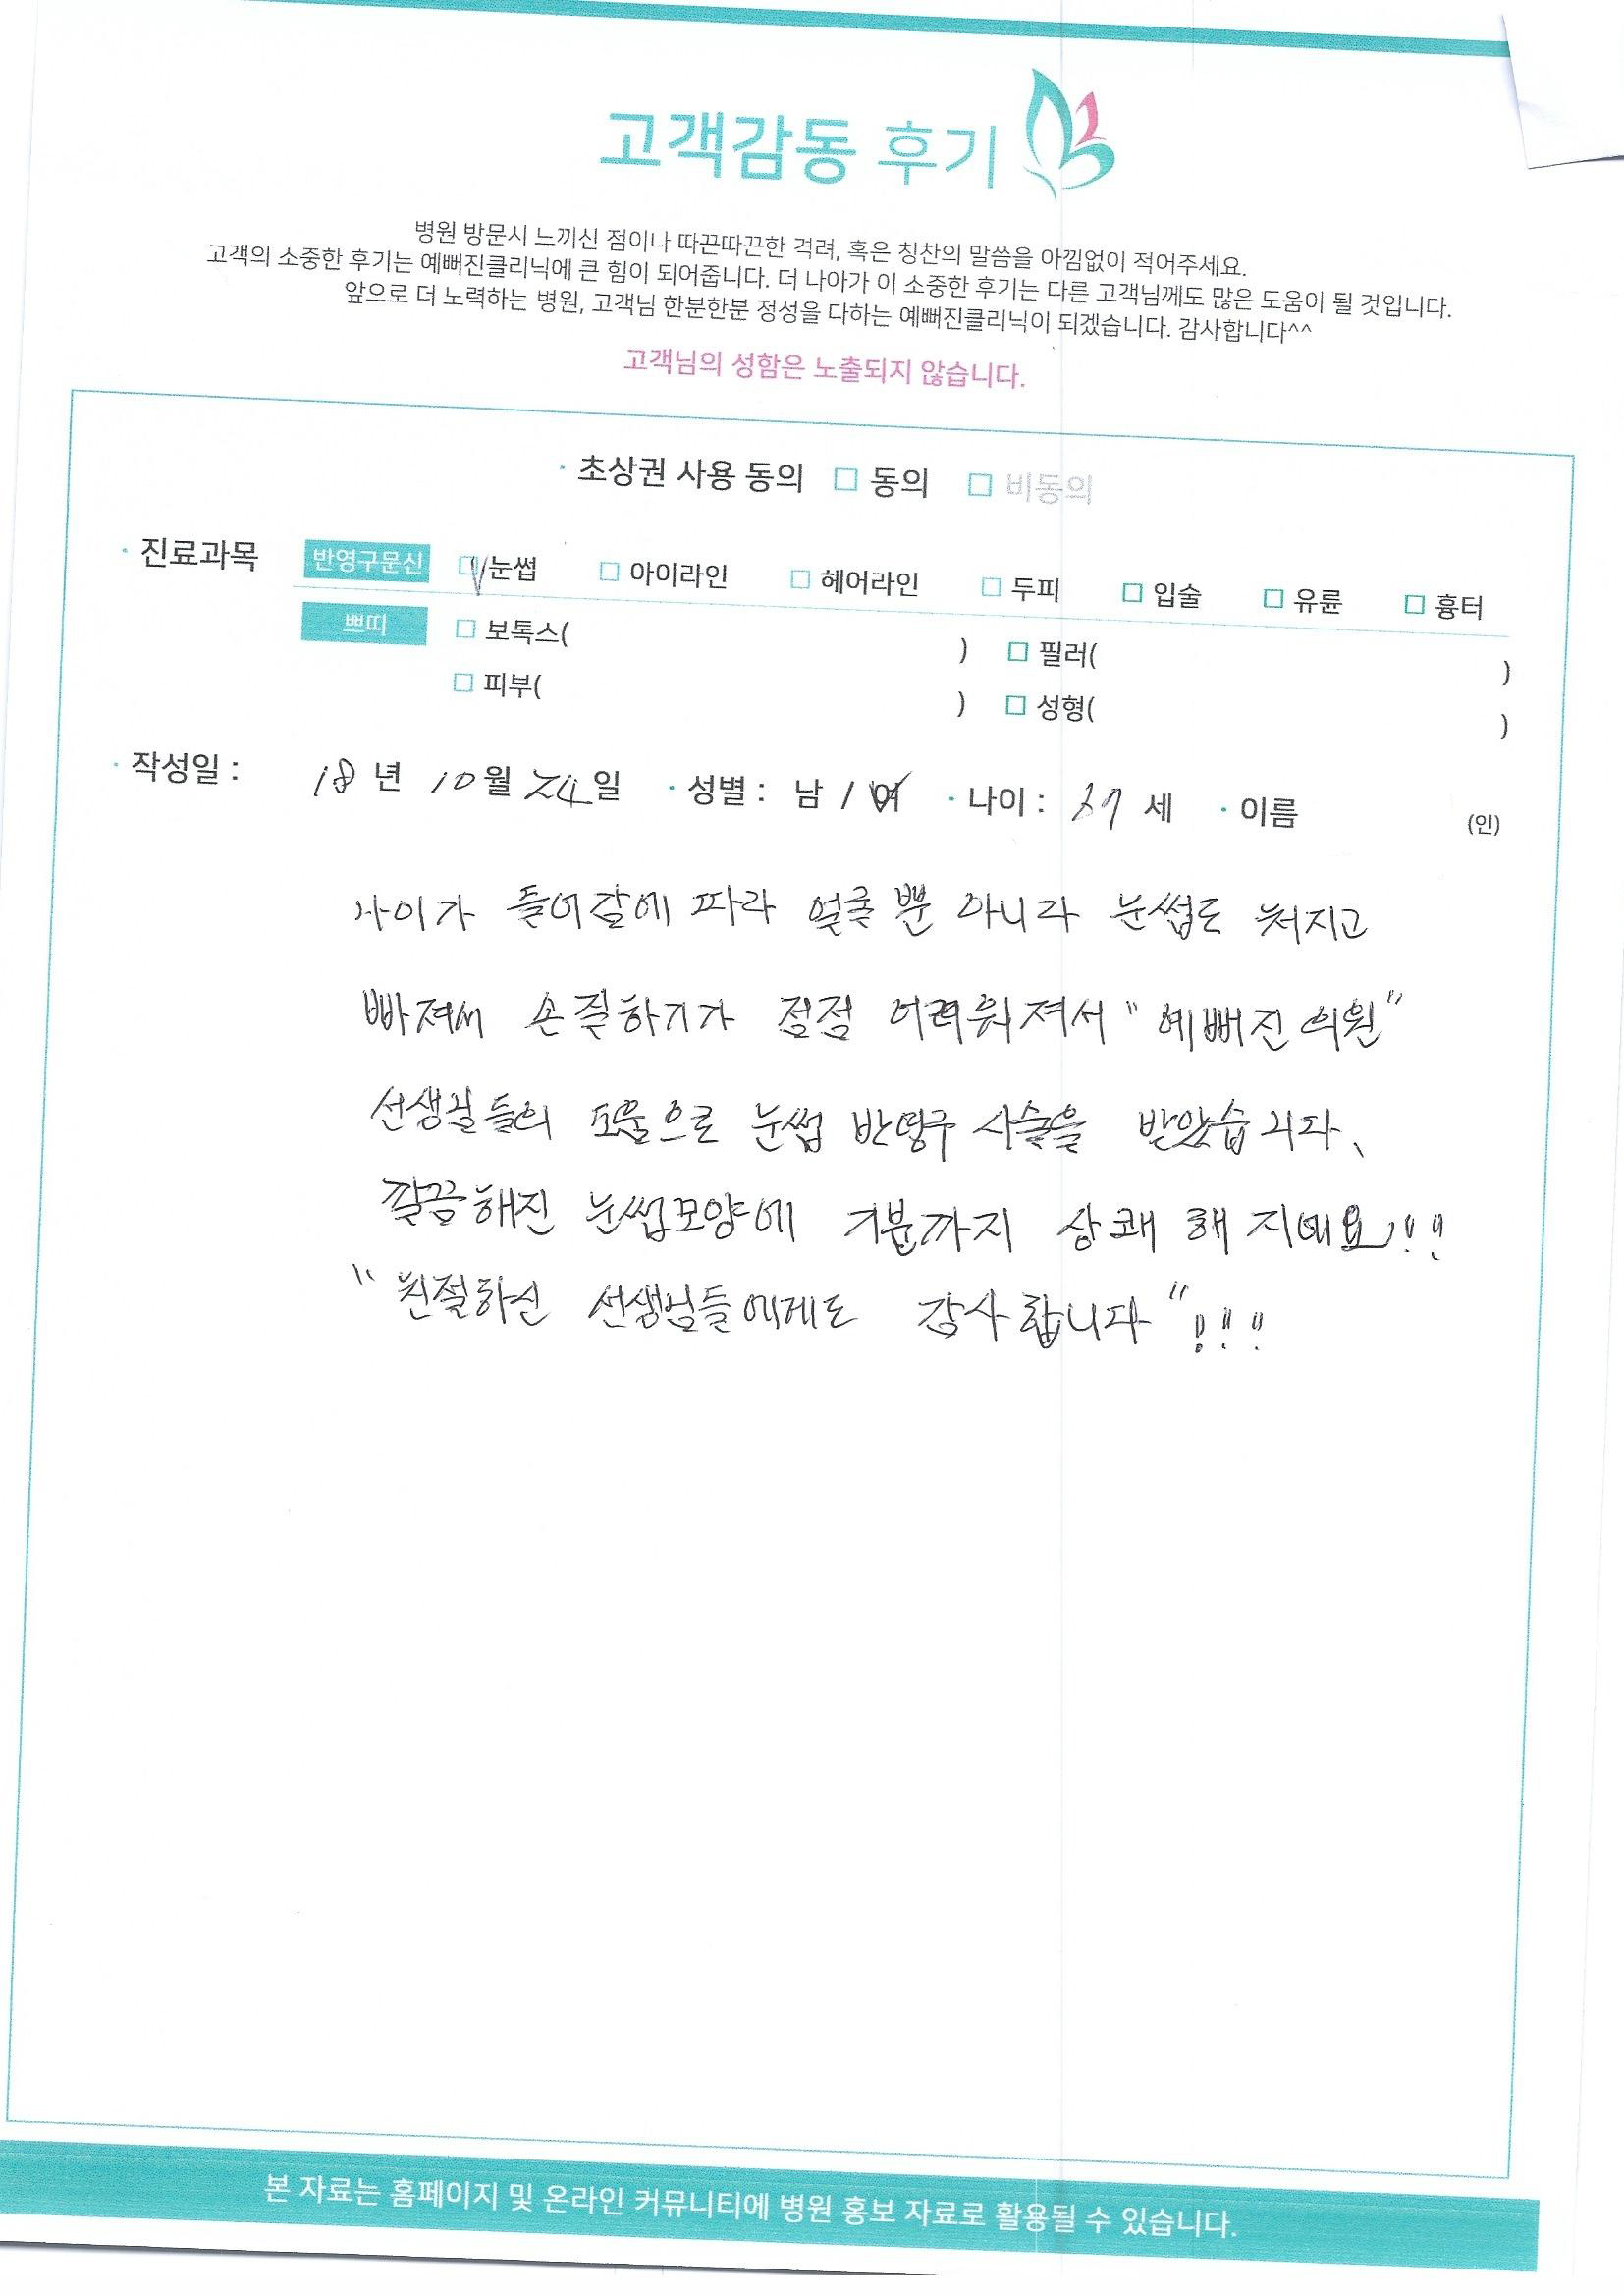 고객감동 후기
병원 방문시 느끼신 점이나 따끈따끈한 격려, 혹은 칭찬의 말씀을 아낌없이 적어주세요.
고객의 소중한 후기는 예뻐진클리닉에 큰 힘이 되어줍니다. 더 나아가 이 소중한 후기는 다른 고객님께도 많은 도움이 될 것입니다.
앞으로 더 노력하는 병원, 고객님 한분한분 정성을 다하는 예뻐진클리닉이 되겠습니다. 감사합니다^^
고객님의 성함은 노출되지 않습니다.
· 초상권 사용 동의 □ 동의 □ 비동의
· 진료과목 반영구문신 ☑ 눈썹 □ 아이라인 □ 헤어라인 □ 두피 □ 입술 □ 유륜 □ 흉터
쁘띠 □ 보톡스( ) □ 필러( )
□ 피부( ) □ 성형( )
· 작성일 : 18년 10월 24일 · 성별 : 남 / 여 · 나이 : 세 · 이름 (인)
나이가 들어감에 따라 얼굴 뿐 아니라 눈썹도 쳐지고
빠져서 손질하기가 점점 어려워져서 "예뻐진의원"
선생님들의 도움으로 눈썹 반영구 시술을 받았습니다.
깔끔해진 눈썹모양에 기분까지 상쾌 해 지네요!!!
"친절하신 선생님들에게도 감사합니다"!!!
본 자료는 홈페이지 및 온라인 커뮤니티에 병원 홍보 자료로 활용될 수 있습니다.